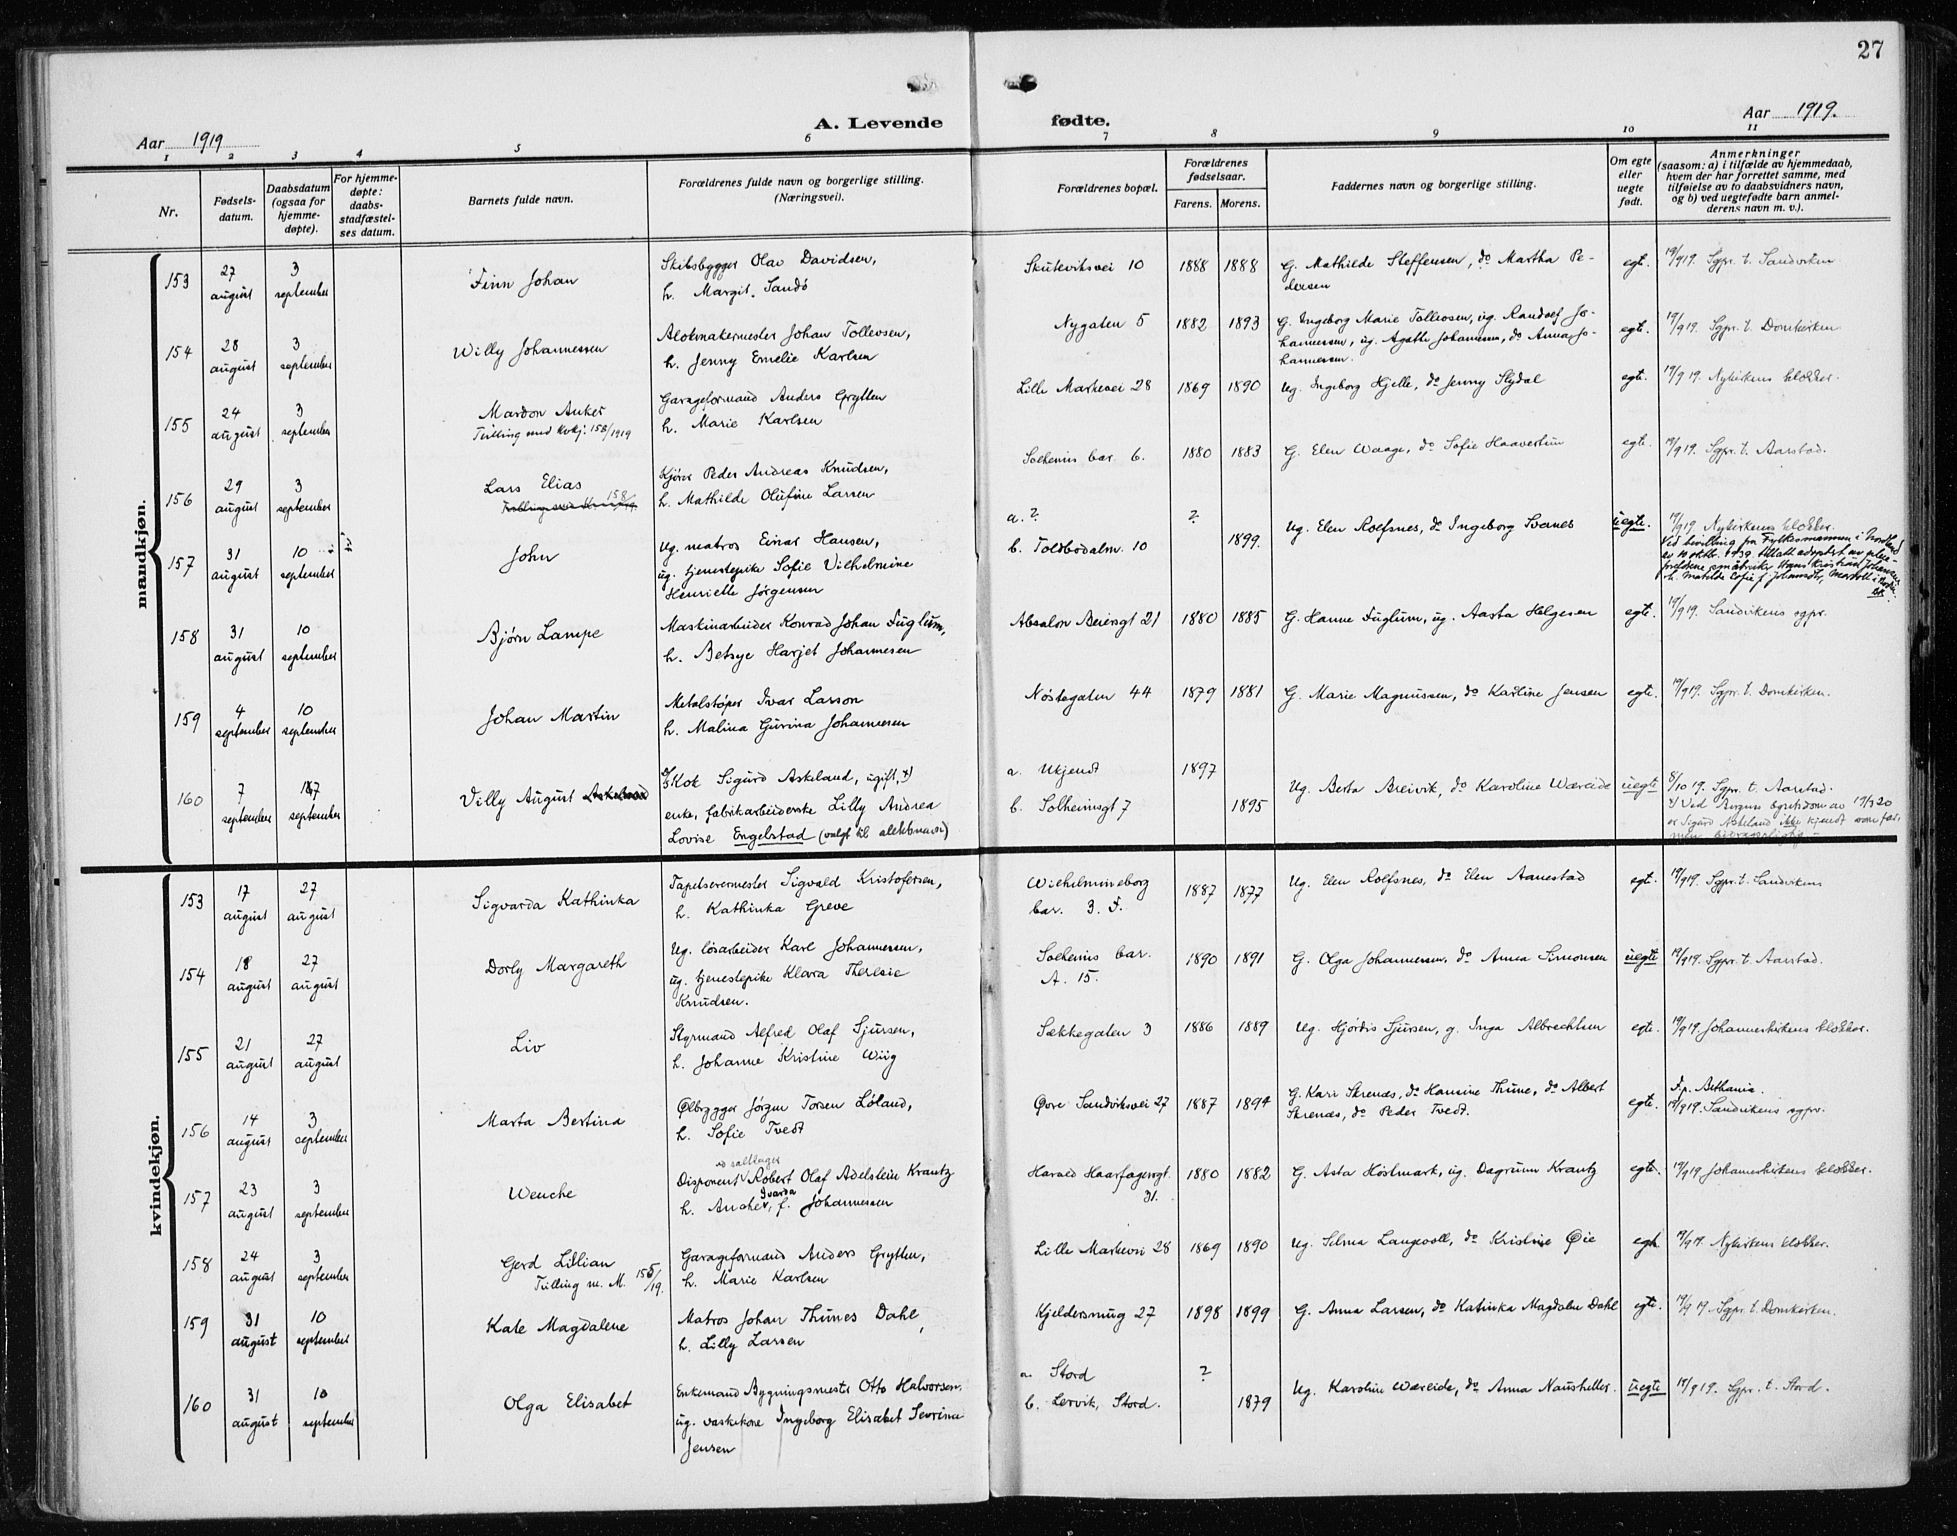 27
Aar 1919
A. Levende
fødte.
Aar 1919.
1 2 3 4 5 6 7 8 9 10 11
Nr.
Fødsels-
datum.
Daabsdatum
(ogsaa for
hjemme-
døpte).
For hjemme-
døpte:
daabs-
stadfæstel-
ses datum.
Barnets fulde navn.
Forældrenes fulde navn og borgerlige stilling.
(Næringsvei).
Forældrenes bopæl.
Forældrenes
fødselsaar.
Farens. Morens.
Faddernes navn og borgerlige stilling.
Om egte
eller
uegte
født.
Anmerkninger
(saasom: a) i tilfælde av hjemmedaab,
hvem der har forrettet samme, med
tilføielse av to daabsvidners navn,
og b) ved uegtefødte barn anmel-
derens navn m. v.).
mandkjøn.
153
27 august
3 september
Finn Johan
Skibsbygger Olav Davidsen,
h. Margit Sandø
Skuteviksvei 10
1888 1888
G. Mathilde Steffensen, do Martha Pe-
dersen
egte.
19/9 19. Sgpr. t. Sandviken
154
28 august
3 september
Willy Johannessen
Johan Tollevsen,
h. Jenny Emelie Karlsen
Nygaten 5
1882 1893
G. Ingeborg Marie Tollevsen, ug. Randolf Jo-
hannessen, ug. Agathe Johannesen, do Anna Jo-
hannessen.
egte.
19/9 19. Sgpr. t. Domkirken
155
24 august
3 september
Mardon Anker
Tvilling med Kvkj. 158/1919
Garageformand Anders Grytten
h. Marie Karlsen
Lille Markevei 28
1869 1890
Ug. Ingeborg Hjelle, do Jenny Slydal
egte.
19/9 19. Nykirkens klokker.
156
29 august
3 september
Lars Elias
Kjører Peder Andreas Knudsen,
h. Mathilde Olufine Larsen
Solheims bar. 6.
1880 1883
G. Elen Waage, do Sofie Haavertun
egte.
19/9 19. Sgpr. t. Aarstad.
157
31 august
10 september
John
Ug. matros Einar Hansen,
ug. tjenestepike Sofie Vilhelmine
Henriette Jørgensen
a. ?
b. Toldbodalm. 10
? 1899.
Ug. Elen Rolfsnes, do Ingeborg Svanes
uegte.
19/9 19 Nykirkens klokker.
Ved bevilling fra Fylkesmannen i Nordland
av 10 oktbr. 1939 tillatt adoptert av pleie-
foreldrene småbruker Hans Kristian Johansen
h. Matilde Sofie f. Johansdtr,
158
31 august
10 september
Bjørn Lampe
Maskinarbeider Konrad Johan Fuglum,
h. Betsye Harjet Johannesen
Absalon Beiersgt 21
1880 1885
G. Hanne Fuglum, ug. Aasta Helgesen
egte.
19/9 19. Sandvikens sgpr.
159
4 september
10 september
Johan Martin
Metalstøper Ivar Larson
h. Malina Gurina Johannesen
Nøstegaten 44
1879 1881
G. Marie Magnussen, do Karline Jensen
egte.
19/9 19. Sgpr. t. Domkirken.
160
7 september
17 september
Villy August Askeland
Kok Sigurd Askeland, ugift, +)
enke, fabrikarbeiderske Lilly Andrea
Lovise Engelstad
a. Ukjendt
b. Solheimsgt 7
1897
1895
Ug. Berta Breivik, do Karoline Wæreide
uegte
8/10 19. Sgpr. t. Aarstad.
+) Ved Bergens byretsdom av 17/3 20
er Sigurd Askeland ikke kjendt som far,
men bidragspligtig.
kvindekjøn.
153
17 august
27 august
Sigvarda Kathinka
Tapetserermester Sigvald Kristofersen,
h. Kathinka Greve
Wilhelmineborg
bar. 3. F.
1887 1877
Ug. Elen Rolfsnes, do Elen Aanestad
egt.
19/9 19. Sgpr. t. Sandvikens
154
18 august
27 august
Dorly Margareth
Ug. løsarbeider Karl Johannessen,
ug. tjenestepike Klara Theresie
Knudsen.
Solheims bar.
A. 15.
1890 1891
G. Olga Johannessen, do Anna Simonsen
uegte
19/9 19. Sgpr. t. Aarstad.
155
21 august
27 august
Liv
Styrmand Alfred Olaf Sjursen,
h. Johanne Kristine Wiig
Sækkegaten 3
1886 1889
Ug. Hjørdis Sjursen, g. Inga Albrechtsen
egte.
19/9 19. Johanneskirkens klokker.
156
14 august
3 september
Marta Bertina
Ølbrygger Jørgen Torsen Løland,
h. Sofie Tvedt
Øvre Sandviksvei 27
1887 1894
G. Kari Skrenes, do Hansine Thune, do Albert
Skrenæs, do Peder Tvedt.
egte.
F.p. Bethania.
19/9 19. Sandvikens sgpr.
157
23 august
3 september
Wenche
Disponent Robert Olaf Adelstein Krantz
h. f. Johannessen
Harald Haarfagersgt.
31.
1880 1882
G. Asta Høstmark, ug. Dagrunn Krantz
egte.
19/9 19 Johanneskirkens klokker.
158
24 august
3 september
Gerd Lillian
Tvilling m. M. 155/19.
Garageformand Anders Grytten,
h. Marie Karlsen
Lille Markevei 28
1869 1890
Ug. Selma Langvoll, do Kristine Øie
egte
19/9 19. Nykirkens klokker.
159
31 august
10 september
Kate Magdalene
Matros Johan Thunes Dahl,
h. Lilly Larsen
Kjeldersmug 27
1898 1899
G. Anna Larsen, do Katinka Magdalm Dahl
egte.
19/9 19. Sgpr. t. Domkirken.
160
31 august
10 september
Olga Elisabet
Enkemand Bygningsmester Otto Halvorsen,
ug. vaskekone Ingeborg Elisabet Severine
Jensen
a. Stord
b. Lervik, Stord.
?
1879
Ug. Karoline Wæreide, do Anna
uegte
19/9 19. Sgpr. t. Stord.